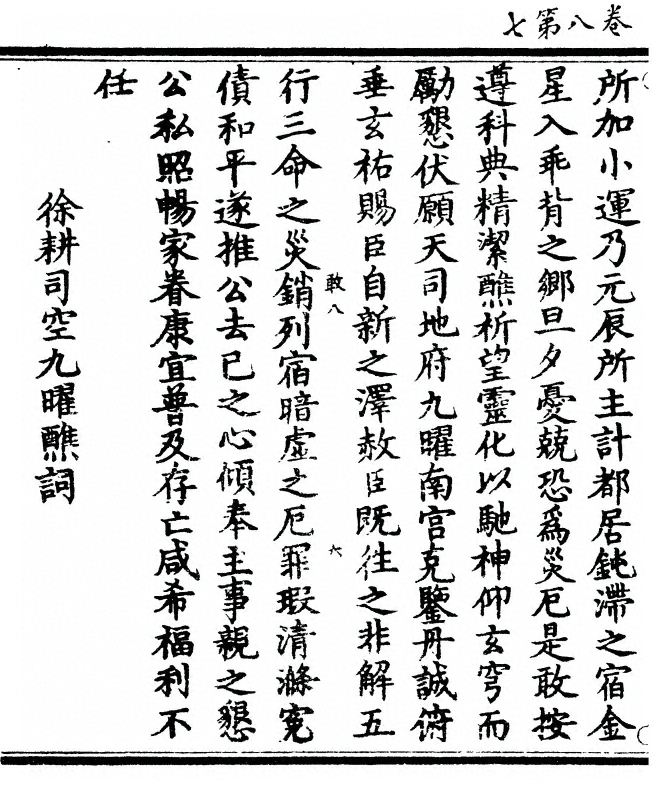 七第八卷
所加小運乃元辰所主計都居鈍滯之宿金
星入乖背之鄉旦夕憂兢恐爲災厄是敢按
遵科典精潔醮祈望靈化以馳神仰玄穹而
勵懇伏願天司地府九曜南宫克鑒丹誠俯
垂玄祐賜臣自新之澤赦臣既往之非解五
敢八
六
行三命之災銷列宿暗虛之厄罪瑕清滌寃
債和平遂推公去已之心傾奉主事親之懇
公私照暢家眷康宜普及存亡咸希福利不
任
徐耕司空九曜醮詞